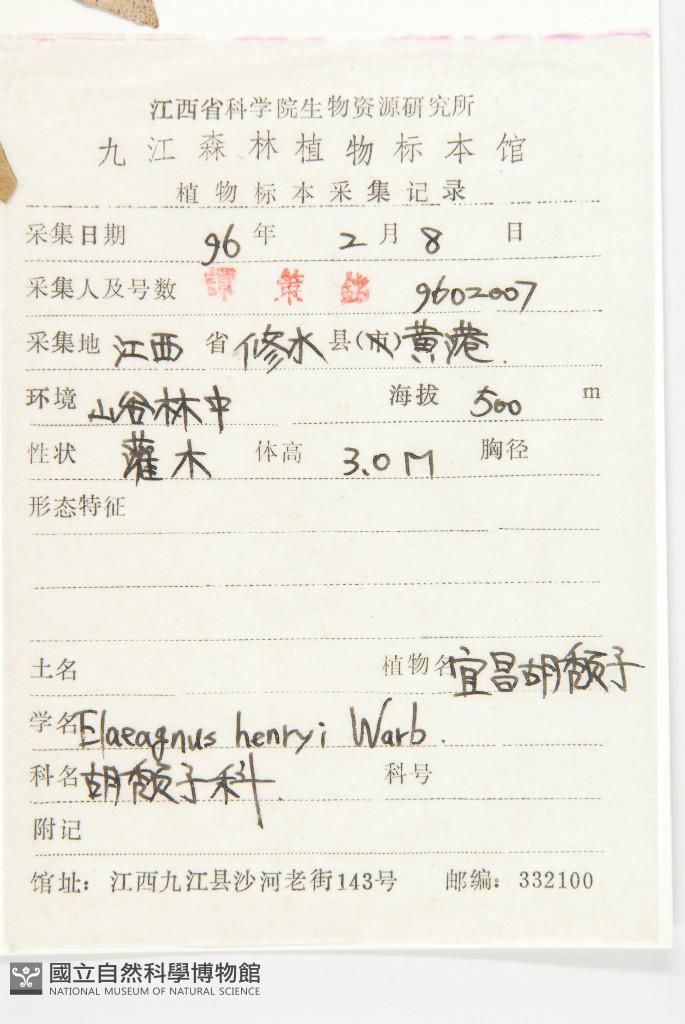 江西省科学院生物资源研究所
九江森林植物标本馆
植物标本采集记录
采集日期 96 年 2 月 8 日
采集人及号数 譚策銘 9602007
采集地 江西 省 修水 县(市) 黄港.
环境 山谷林中 海拔 500 m
性状 灌木 体高 3.0M 胸径
形态特征
土名 植物名 宜昌胡颓子
学名 Elaeagnus henryi Warb.
科名 胡颓子科. 科号
附记
馆址：江西九江县沙河老街143号 邮编：332100
國立自然科學博物館
NATIONAL MUSEUM OF NATURAL SCIENCE